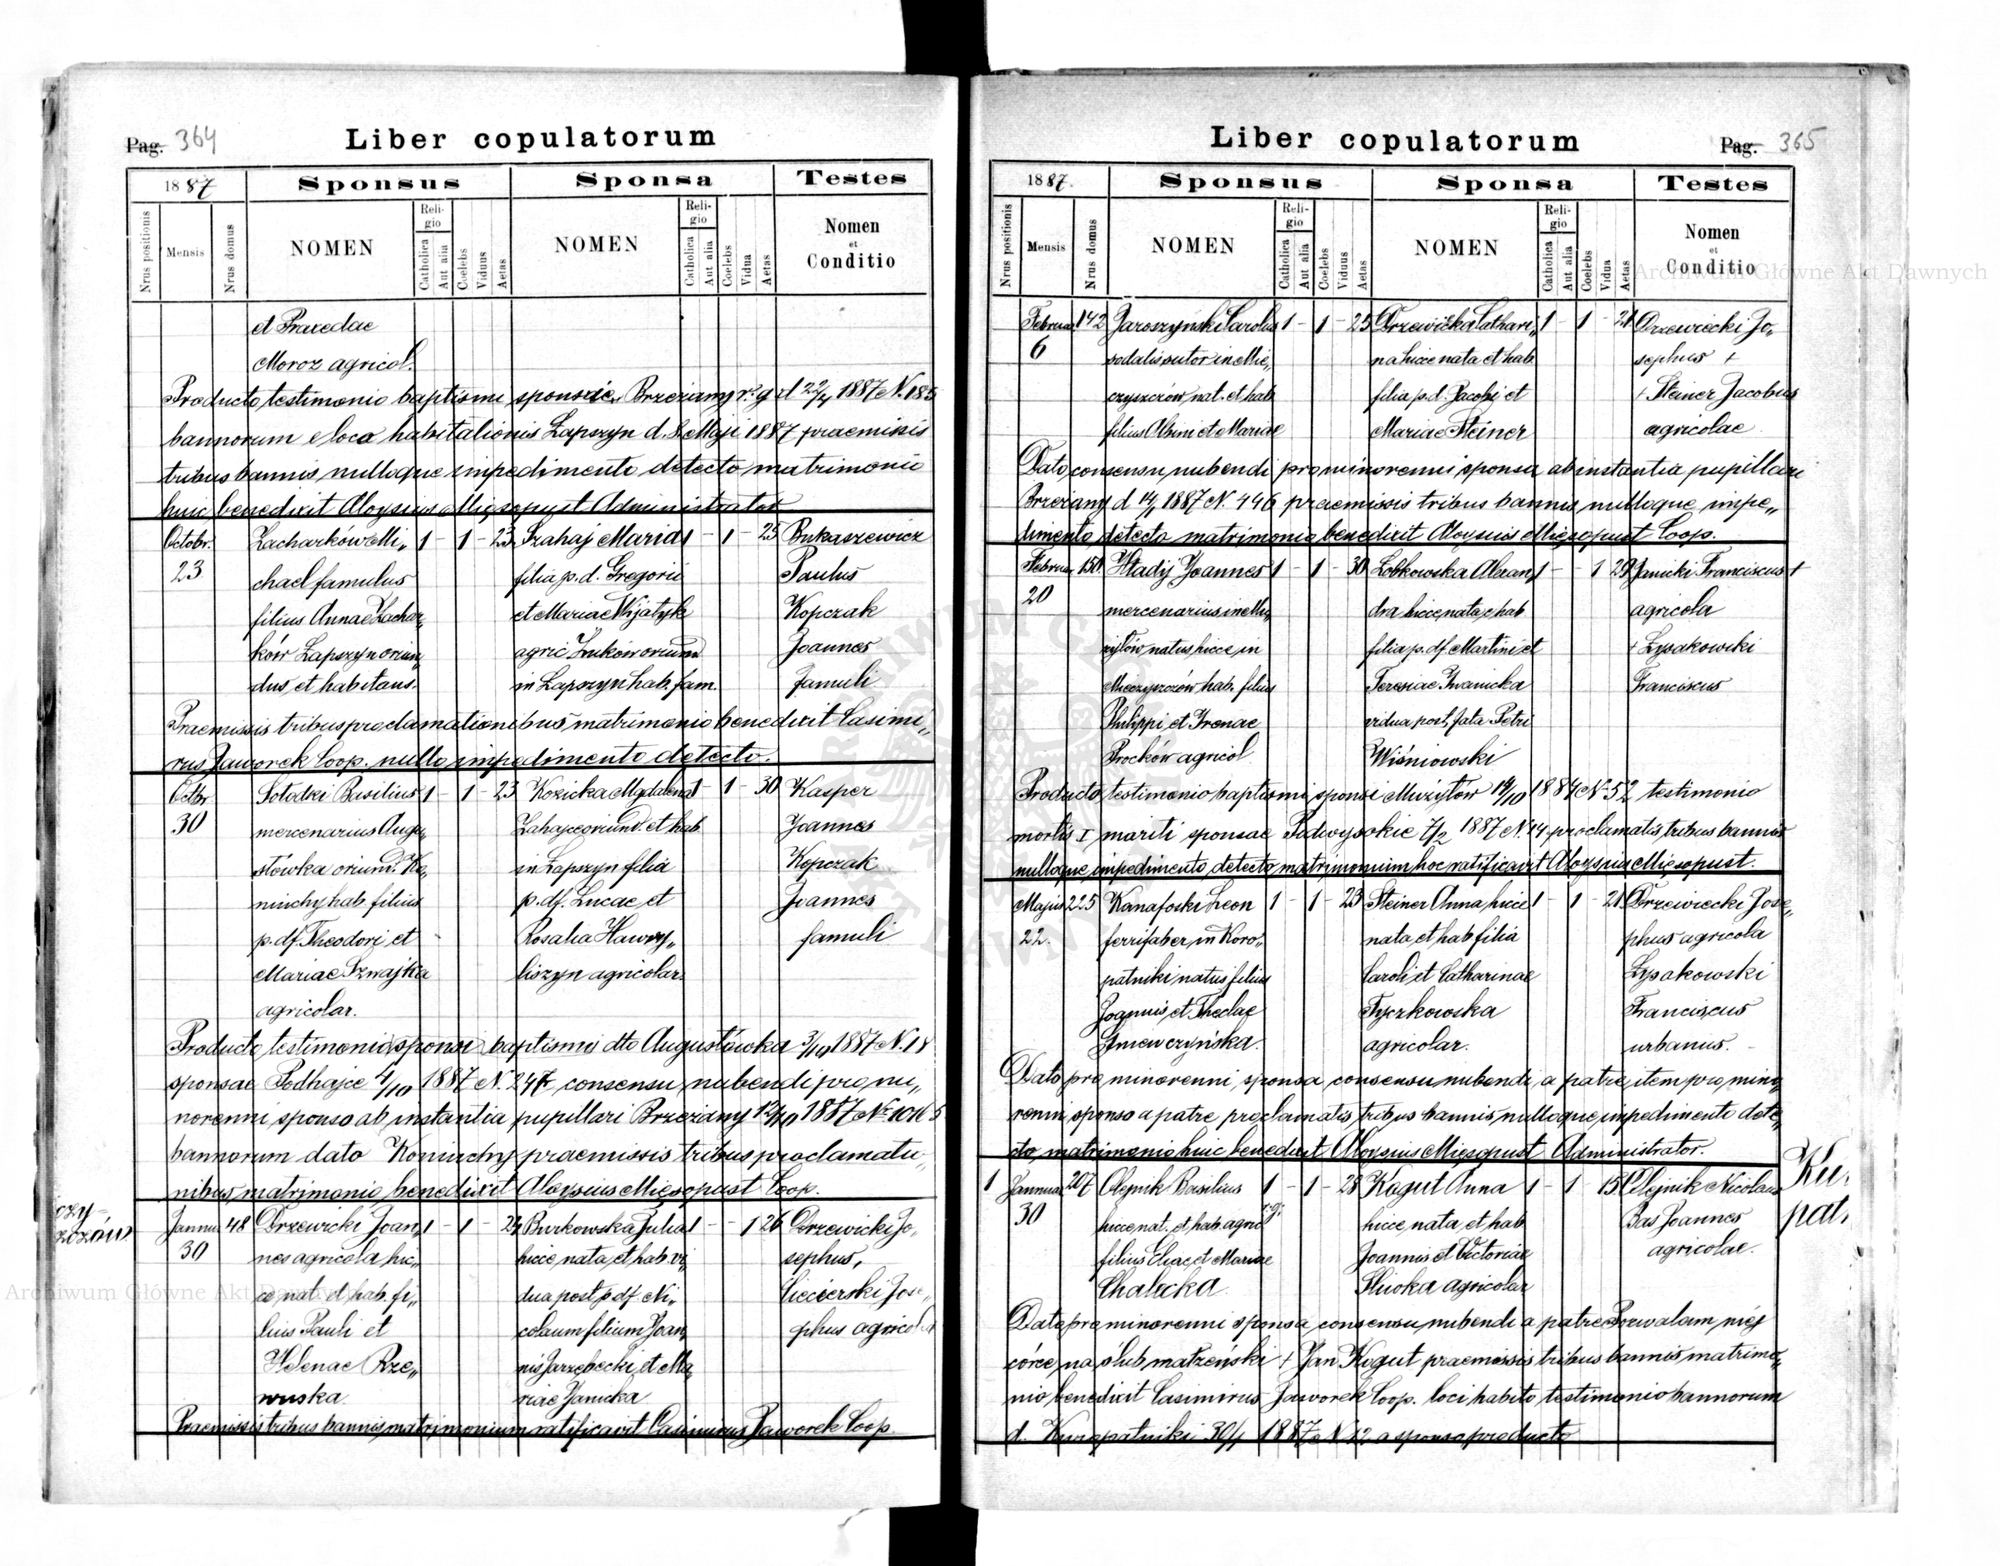 Pag. 364
Liber copulatorum
1887
Sponsus
Sponsa
Testes
Nrus positionis
Mensis
Nrus domus
NOMEN
Religio
Catholica
Aut alia
Coelebs
Viduus
Aetas
NOMEN
Religio
Catholica
Aut alia
Coelebs
Vidua
Aetas
Nomen
et
Conditio
et Praxedae
Moroz agricol.
Producto testimonio baptismi Brzeżany 1887 N. 185
bannorum e loco habitationis Łapszyn d. 8 Maji 1887 praemissis
tribus bannis nulloque impedimento detecto matrimonio
huic benedixit Aloysius Mięsopust Administrator
Octobr. Zacharków Mi„ 1 - 1 - 23 Szahaj Maria 1 - 1 - 25 Bukaszewicz
23 chael famulus filia p. d. Gregorii Paulus
filius Annae Zachar„ et Mariae Kopczak
ków Łapszyn oriun„ agric Żuków oriund Joannes
dus et habitans. in Łapszyn hab. fam. famuli
Praemissis tribus proclamationibus matrimonio benedixit Casimi„
rus Jaworek Coop. nullo impedimento detecto.
Octbr Basilius 1 - 1 - 23 Kozicka Magdalena 1 - 1 - 30 Kasper
30 mercenarius Augu„ oriund. et hab Joannes
stówka oriund. Ko„ in Łapszyn filia Kopczak
niuchy hab. filius p. df. Lucae et Joannes
p. df. Theodori et Rosalia Hawry„ famuli
Mariae liszyn agricolar.
agricolar.
Producto testimonio sponsi baptismi dtto Augustówka 3/10 1887 N. 18
sponsae Podhajce 4/10 1887 N. 247 consensu nubendi pro mi„
norenni sponso ab instantia pupillari Brzeżany 12/10 1887 N.
bannorum dato Koniuchy praemissis tribus proclamatio„
nibus matrimonio benedixit Aloysius Mięsopust Coop.
Januar 48 Drzewicki Joan„ 1 - 1 - Burkowska Julia 1 - - 1 26 Drzewicki Jo„
30 nes agricola hic„ hicce nata et hab. vi„ sephus,
ce nat. et hab. fi„ dua post p df. Ni„ Josе„
lius Pauli et colaum filium Joan„ phus agricola
Helenae Rze„ nis Jarzębecki et Ma„
wuska riae Janicka
Praemissis tribus bannis matrimonium ratificavit Casimirus Jaworek Coop.
Pag. 365
Liber copulatorum
1887.
Sponsus
Sponsa
Testes
Nrus positionis
Mensis
Nrus domus
NOMEN
Religio
Catholica
Aut alia
Coelebs
Viduus
Aetas
NOMEN
Religio
Catholica
Aut alia
Coelebs
Vidua
Aetas
Nomen
et
Conditio
Februar 142 Jaroszyński Carolus 1 - 1 - 25 Drzewicka Cathari„ 1 - 1 - 21 Drzewiecki Jo„
6 sodalis sutor in Mie„ na hicce nata et hab. sephus +
czyszczów nat. et hab. filia p. d. Jacobi et + Steiner Jacobus
filius Albini et Mariae Mariae Steiner agricolae
Dato consensu nubendi pro minorenni sponsa ab instantia pupillari
Brzeżany d 14/1 1887 N. 446 praemissis tribus bannis nulloque impe„
dimento detecto matrimonio benedixit Aloysius Mięsopust Coop.
Februar 150 Hładij Joannes 1 - 1 - 30 Łobkowska Alexan„ 1 - - 1 29 Janicki Franciscus +
20 mercenarius in Mu„ dra hicce nata et hab agricola
żyłów natus hicce in filia p. df Martini et + Łysakowski
Mieczyszczów hab. filius Teresiae Iwanicka Franciscus
Philippi et Irenae vidua post fata Petri
Proćków agricol Wiśniowski
Producto testimonio baptismi sponsi Mużyłów 14/10 1884 N. 52 testimonio
mortis I mariti sponsae Podwysokie 7/2 1887 N. 14 proclamatis tribus bannis
nulloque impedimento detecto matrimonium hoc ratificavit Aloysius Mięsopust.
Majus 225 Kanafoski Leon 1 - 1 - 23 Steiner Anna hicce 1 - 1 - 21 Drzewiecki Jose„
22. ferrifaber in Koro„ nata et hab filia phus agricola
patniki natus filius Caroli et Catharinae Łysakowski
Joannis et Theclae Tyczkowska Franciscus
Gniewczyńska. agricolar. urbanus.
Dato pro minorenni sponsa consensu nubendi a patre item pro mino
renni sponso a patre proclamatis tribus bannis nulloque impedimento dete„
cto matrimonio huic benedixit Aloysius Mięsopust Administrator.
1 Januar 207 Olejnik Basilius 1 - 1 - 28 Kogut Anna 1 - 1 - 15 Olejnik Nicolaus
30 hicce nat. et hab. agric hicce nata et hab Bas Joannes
filius Eliae et Mariae Joannis et Victoriae agricolae.
Chalecka agricolar
Dato pro minorenni sponsa consensu nubendi a patre Pozwalam mej
córce na ślub małżeński + Jan Kogut praemissis tribus bannis matrimo„
nio benedixit Casimirus Jaworek Coop. loci habito testimonio bannorum
d. Kuropatniki 30/1 1887 N 12 a sponso producto
Archiwum Główne Akt Dawnych